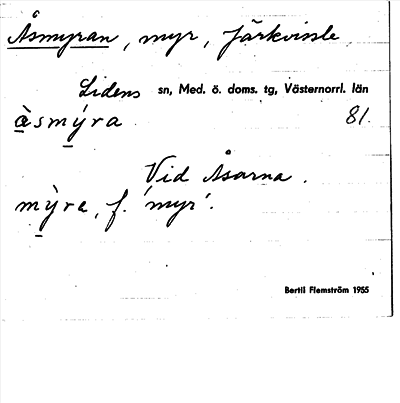 Åsmyran, myr, Järkvissle
Lidens sn, Med. ö. doms. tg, Västernorrl. län
àsmýra 81.
Vid Åsarna.
mỳra, f. 'myr'.
Bertil Flemström 1955